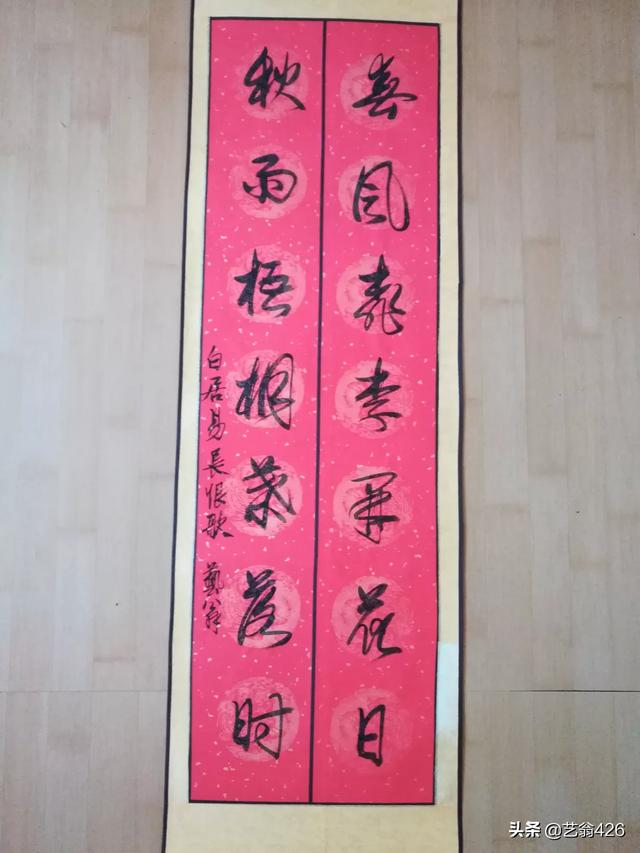 春风桃李开花日
秋雨梧桐叶落时
白居易長恨歌 藝翁
头条 @艺翁426